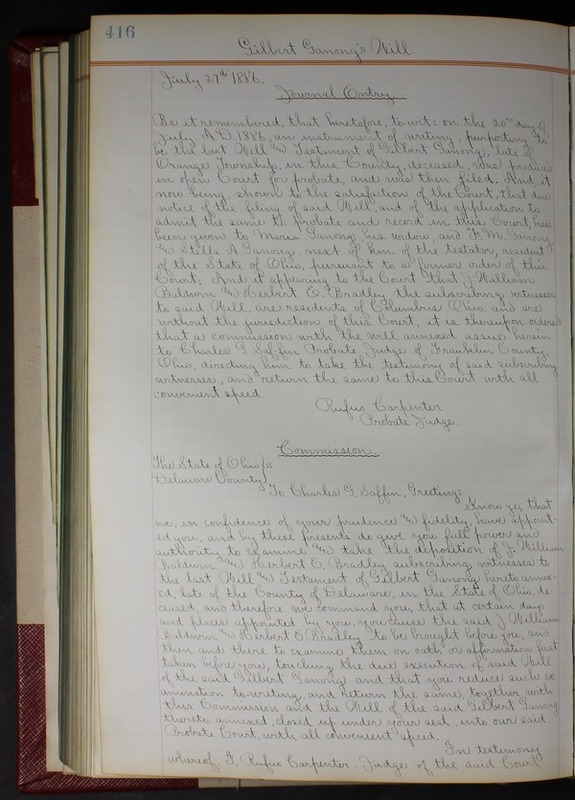 416
Gilbert Ganong's Will.
July 27th 1886.
Journal Entry.
Be it remembered, that heretofore, to wit: on the 20th day of
July A.D. 1886, an instrument of writing, purporting to
be the last Will and Testament of Gilbert Ganong, late of
Orange Township, in this County, deceased, was produced
in open Court for probate, and was then filed. And, it
now being shown to the satisfaction of the Court, that due
notice of the filing of said Will, and of the application to
admit the same to probate and record in this Court, has
been given to Maria Ganong his widow, and F. M. Ganong
and Stella A. Ganong, next of kin of the testator, resident
of the State of Ohio, pursuant to a former order of this
Court; And it appearing to the Court that J. William
Baldwin and Herbert E. Bradley the subscribing witnesses
to said Will, are residents of Columbus Ohio and are
without the jurisdiction of this Court, it is thereupon ordered
that a commission with the will annexed issue herein
to Charles G. Saffin Probate Judge of Franklin County,
Ohio, directing him to take the testimony of said subscribing
witnesses, and return the same to this Court with all
convenient speed.
Rufus Carpenter
Probate Judge.
Commission.
The State of Ohio ss
Delaware County
To Charles G. Saffin, Greeting:
Know ye, that
we, in confidence of your prudence and fidelity, have appoint-
ed you, and by these presents do give you full power and
authority to examine and take the deposition of J. William
Baldwin and Herbert E. Bradley subscribing witnesses to
the last Will and Testament of Gilbert Ganong hereto annex-
ed, late of the County of Delaware, in the State of Ohio, de-
ceased, and therefore we command you, that at certain days
and places appointed by you, you cause the said J. William
Baldwin and Herbert E. Bradley to be brought before you, and
then and there to examine them on oath or affirmation first
taken before you, touching the due execution of said Will
of the said Gilbert Ganong and that you reduce such ex-
amination to writing, and return the same, together with
this Commission and the Will of the said Gilbert Ganong
thereto annexed, closed up under your seal, into our said
Probate Court, with all convenient speed.
In testimony
whereof I, Rufus Carpenter, Judge of the said Court